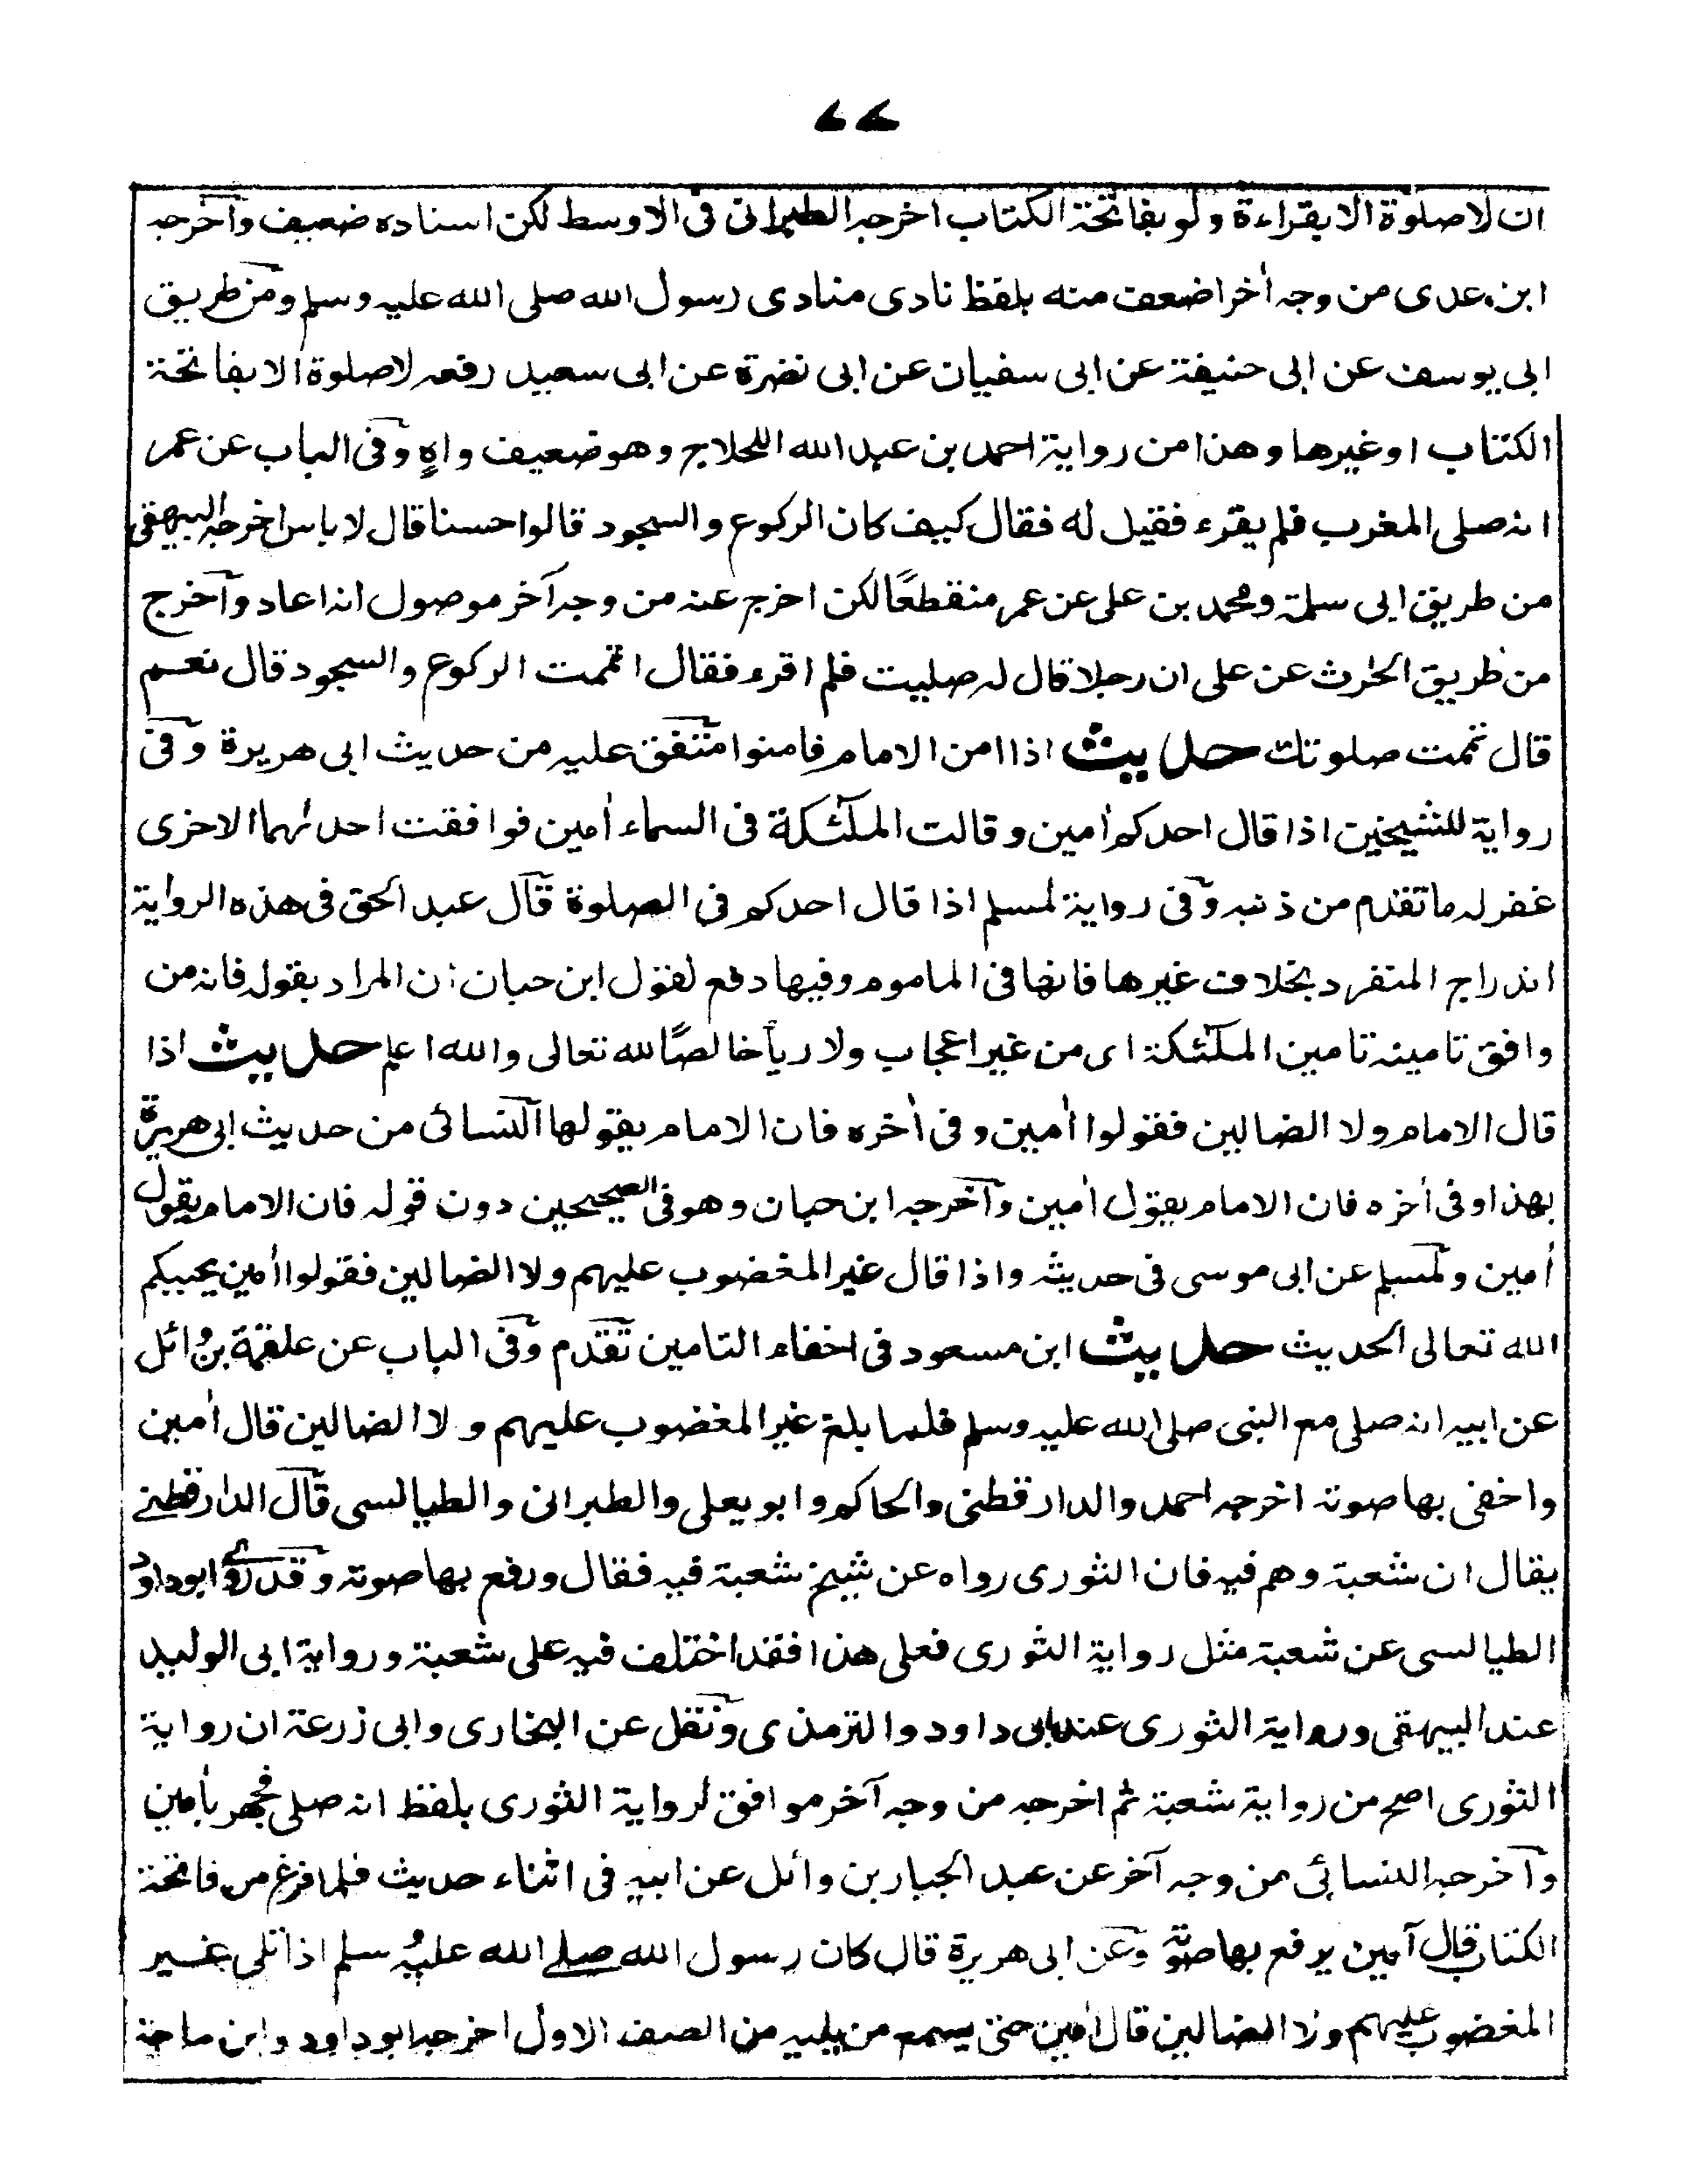 ٧٧
ان لا صلوة الا بقراءة ولو بفاتحة الكتاب اخرجه الطبرانى فى الاوسط لكن اسناده ضعيف وآخرجه
ابن عدى من وجه أخر اضعف منه بلفظ نادى منادى رسول الله صلى الله عليه وسلم ومن طريق
ابى يوسف عن ابى حنيفة عن ابى سفيان عن ابى نضرة عن ابى سعيد رفعه لا صلوة الا بفاتحة
الكتاب او غيرها وهذا من رواية احمد بن عبد الله اللجلاج وهو ضعيف واهٍ وفى الباب عن عمر
انه صلى المغرب فلم يقرء فقيل له فقال كيف كان الركوع والسجود قالوا حسنا قال لا باس اخرجه البيهقى
من طريق ابى سلمة ومحمد بن على عن عمر منقطعًا لكن اخرج عنه من وجه آخر موصول انه اعاد وآخرج
من طريق الحٰرث عن على ان رجلا قال له صليت فلم اقرء فقال اتممت الركوع والسجود قال نعم
قال تمت صلوتك حديث اذا امن الامام فامنوا متفق عليه من حديث ابى هريرة وفى
رواية للشيخين اذا قال احدكم أمين وقالت الملٰئكة فى السماء أمين فوافقت احدٰهما الاخرى
غفر له ما تقدم من ذنبه وفى رواية لمسلم اذا قال احدكم فى الصلوة قال عبد الحق فى هذه الرواية
اندراج المنفرد بخلاف غيرها فانها فى الماموم وفيها دفع لقول ابن حبان ان المراد بقوله فانه من
وافق تامينه تامين الملٰئكة اى من غير اعجاب ولا رياً خالصًا لله تعالى والله اعلم حديث اذا
قال الامام ولا الضالين فقولوا أمين وفى أخره فان الامام يقولها النسائى من حديث ابى هريرة
بهذا وفى أخره فان الامام يقول أمين وآخرجه ابن حبان وهو فى الصحيحين دون قوله فان الامام يقول
أمين ولمسلم عن ابى موسى فى حديثه واذا قال غير المغضوب عليهم ولا الضالين فقولوا أمين يحببكم
الله تعالى الحديث حديث ابن مسعود فى اخفاء التامين تقدم وفى الباب عن علقمة بن وائل
عن ابيه انه صلى مع النبى صلى الله عليه وسلم فلما بلغ غير المغضوب عليهم ولا الضالين قال أمين
واخفى بها صوته اخرجه احمد والدارقطنى والحاكم وابو يعلى والطبرانى والطيالسى قال الدارقطنے
يقال ان شعبة وهم فيه فان الثورى رواه عن شيخ شعبة فيه فقال ورفع بها صوته وقد روٰے ابو داود
الطيالسى عن شعبة مثل رواية الثورى فعلى هذا فقد اختلف فيه على شعبة ورواية ابى الوليد
عند البيهقى ورواية الثورى عند ابى داود والترمذى ونقل عن البخارى وابى زرعة ان رواية
الثورى اصح من رواية شعبة ثم اخرجه من وجه آخر موافق لرواية الثورى بلفظ انه صلى فجهر بأمين
وآخرجه النسائى من وجه آخر عن عبد الجبار بن وائل عن ابيه فى اثناء حديث فلما فرغ من فاتحة
الكتاب قال آمين يرفع بها صوته وعن ابى هريرة قال كان رسول الله صلے الله عليه وسلم اذا تلى غير
المغضوب عليهم ولا الضالين قال أمين حتى يسمع من يليه من الصف الاول اخرجه ابو داود وابن ماجة